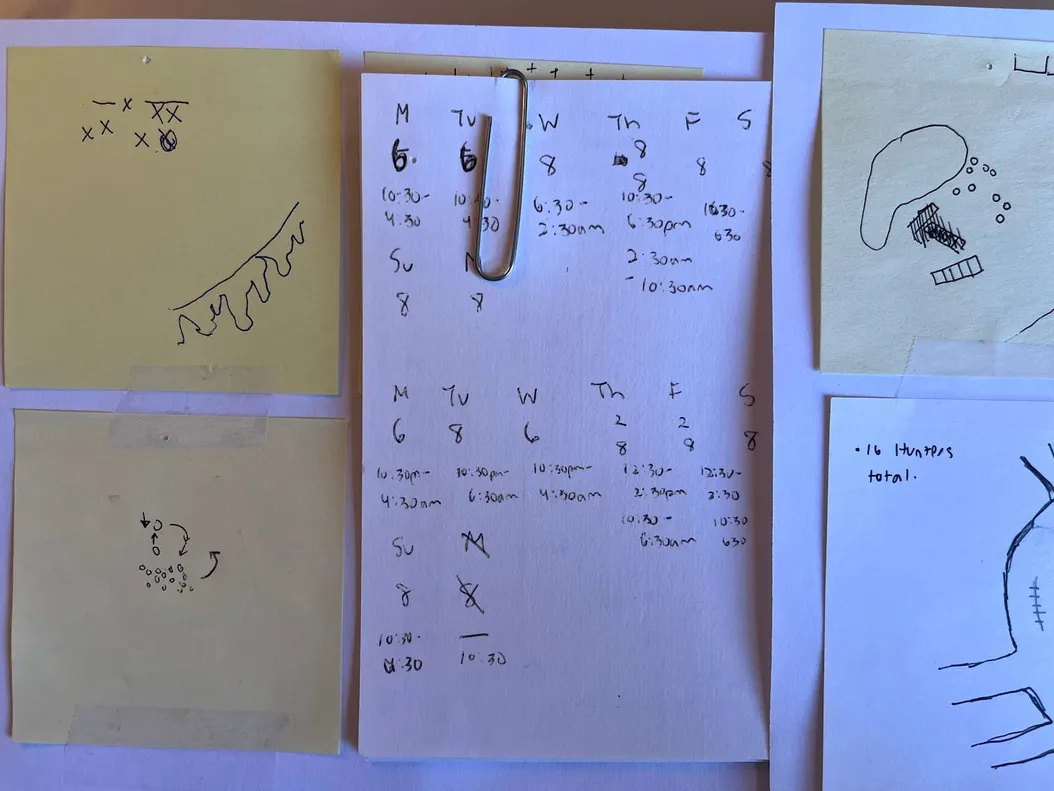 M Tu W Th F S
6 6 8 8 8 8
8
10:30- 10:30- 6:30- 10:30- 1030-
4:30 4:30 2:30am 6:30pm 630
Su 2:30am
-10:30am
8 8
M Tu W Th F S
6 8 6 2 2 8
8 8
10:30pm- 10:30pm- 10:30pm- 12:30- 12:30-
4:30am 6:30am 4:30am 2:30pm 2:30
10:30- 10:30
6:30am 630
Su M
8 8
10:30-
:30 10:30
• 16 Hunters
total.